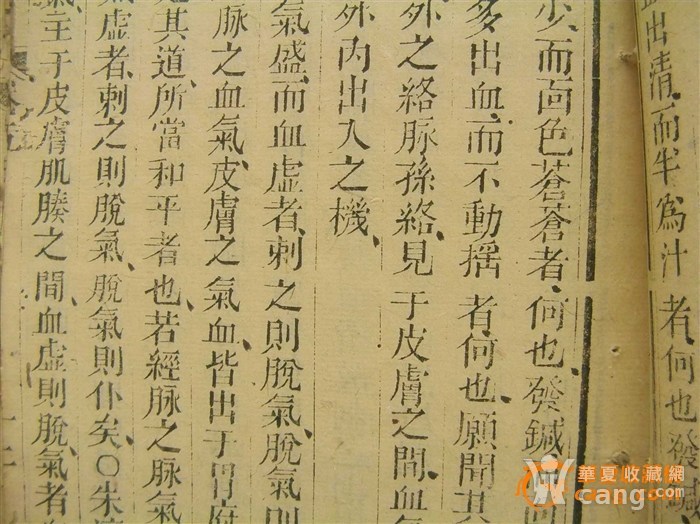 出清而半爲汁者何也發
少而面色蒼蒼者、何也、發鍼
多出血、而不動搖者、何也、願聞其
外之絡脉孫絡、見于皮膚之間、血氣
外内出入之機、
氣盛而血虛者、刺之則脫氣、脫氣則
脉之血氣、皮膚之氣血、皆出于胃府
其道、所當和平者也、若經脉之脉氣
虛者、刺之則脫氣、脫氣則仆矣、〇朱
氣主于皮膚肌腠之間、血虛則脫、氣者
華夏收藏網
cang